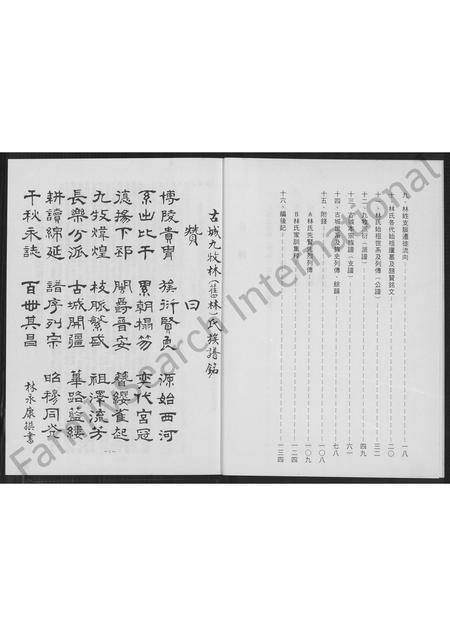 九、林姓支脈遷徙流向 一八
十、林氏各代始祖陵墓及題贊銘文 二〇
十一、林氏始祖世系及列傳(公譜) 三二
十二、九牧衍派(派譜) 四九
十三、古城林氏宗族譜(支譜) 六一
十四、古城世系及族史列傳、餘韻 七八
十五、附錄 一〇八
A林氏先賢烈列傳 一〇九
B林氏家訓集粹 一二四
十六、編後記 一三四
古城九牧林(舊林)氏族譜銘
贊曰
博陵貴冑 族衍賢良 源始西河
系出比干 累朝搢笏 奕代宮冠
德揚下邳 開爵晉安 簪纓雀起
九牧煒煌 枝脈繁盛 祖澤流芳
長樂分派 古城開疆 蓽路藍縷
耕讀綿延 譜序列宗 昭穆同炎
千秋永誌 百世其昌
林永康撰書
FamilySearch International